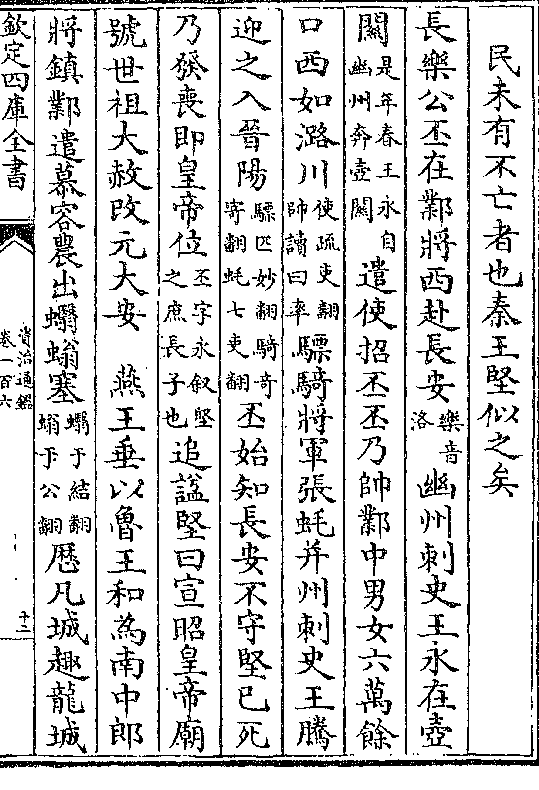 民未有不亡者也秦王堅似之矣
長樂公丕在鄴將西赴長安樂音洛幽州刺史王永在壺
關是年春王永自幽州奔壺關遣使招丕丕乃帥鄴中男女六萬餘
口西如潞川使疏吏翻帥讀曰率驃騎將軍張蚝并州刺史王騰
迎之入晉陽驃匹妙翻騎奇寄翻蚝七吏翻丕始知長安不守堅已死
乃發喪即皇帝位丕字永叙堅之庶長子也追諡堅曰宣昭皇帝廟
號世祖大赦改元大安　燕王垂以魯王和為南中郎
將鎮鄴遣慕容農出蠮螉塞蠮于結翻螉于公翻厯凡城趣龍城
欽定四庫全書
資治通鑑
卷一百六
十二